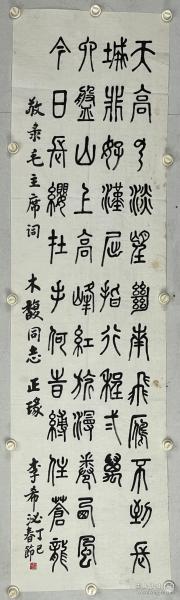 天高云淡望断南飞雁不到长
城非好汉屈指行程弍万
六盘山上高峰红旗漫卷西风
今日长缨在手何时缚住苍龙
敬录毛主席词
木馥同志正缘
丁巳春节
李希泌